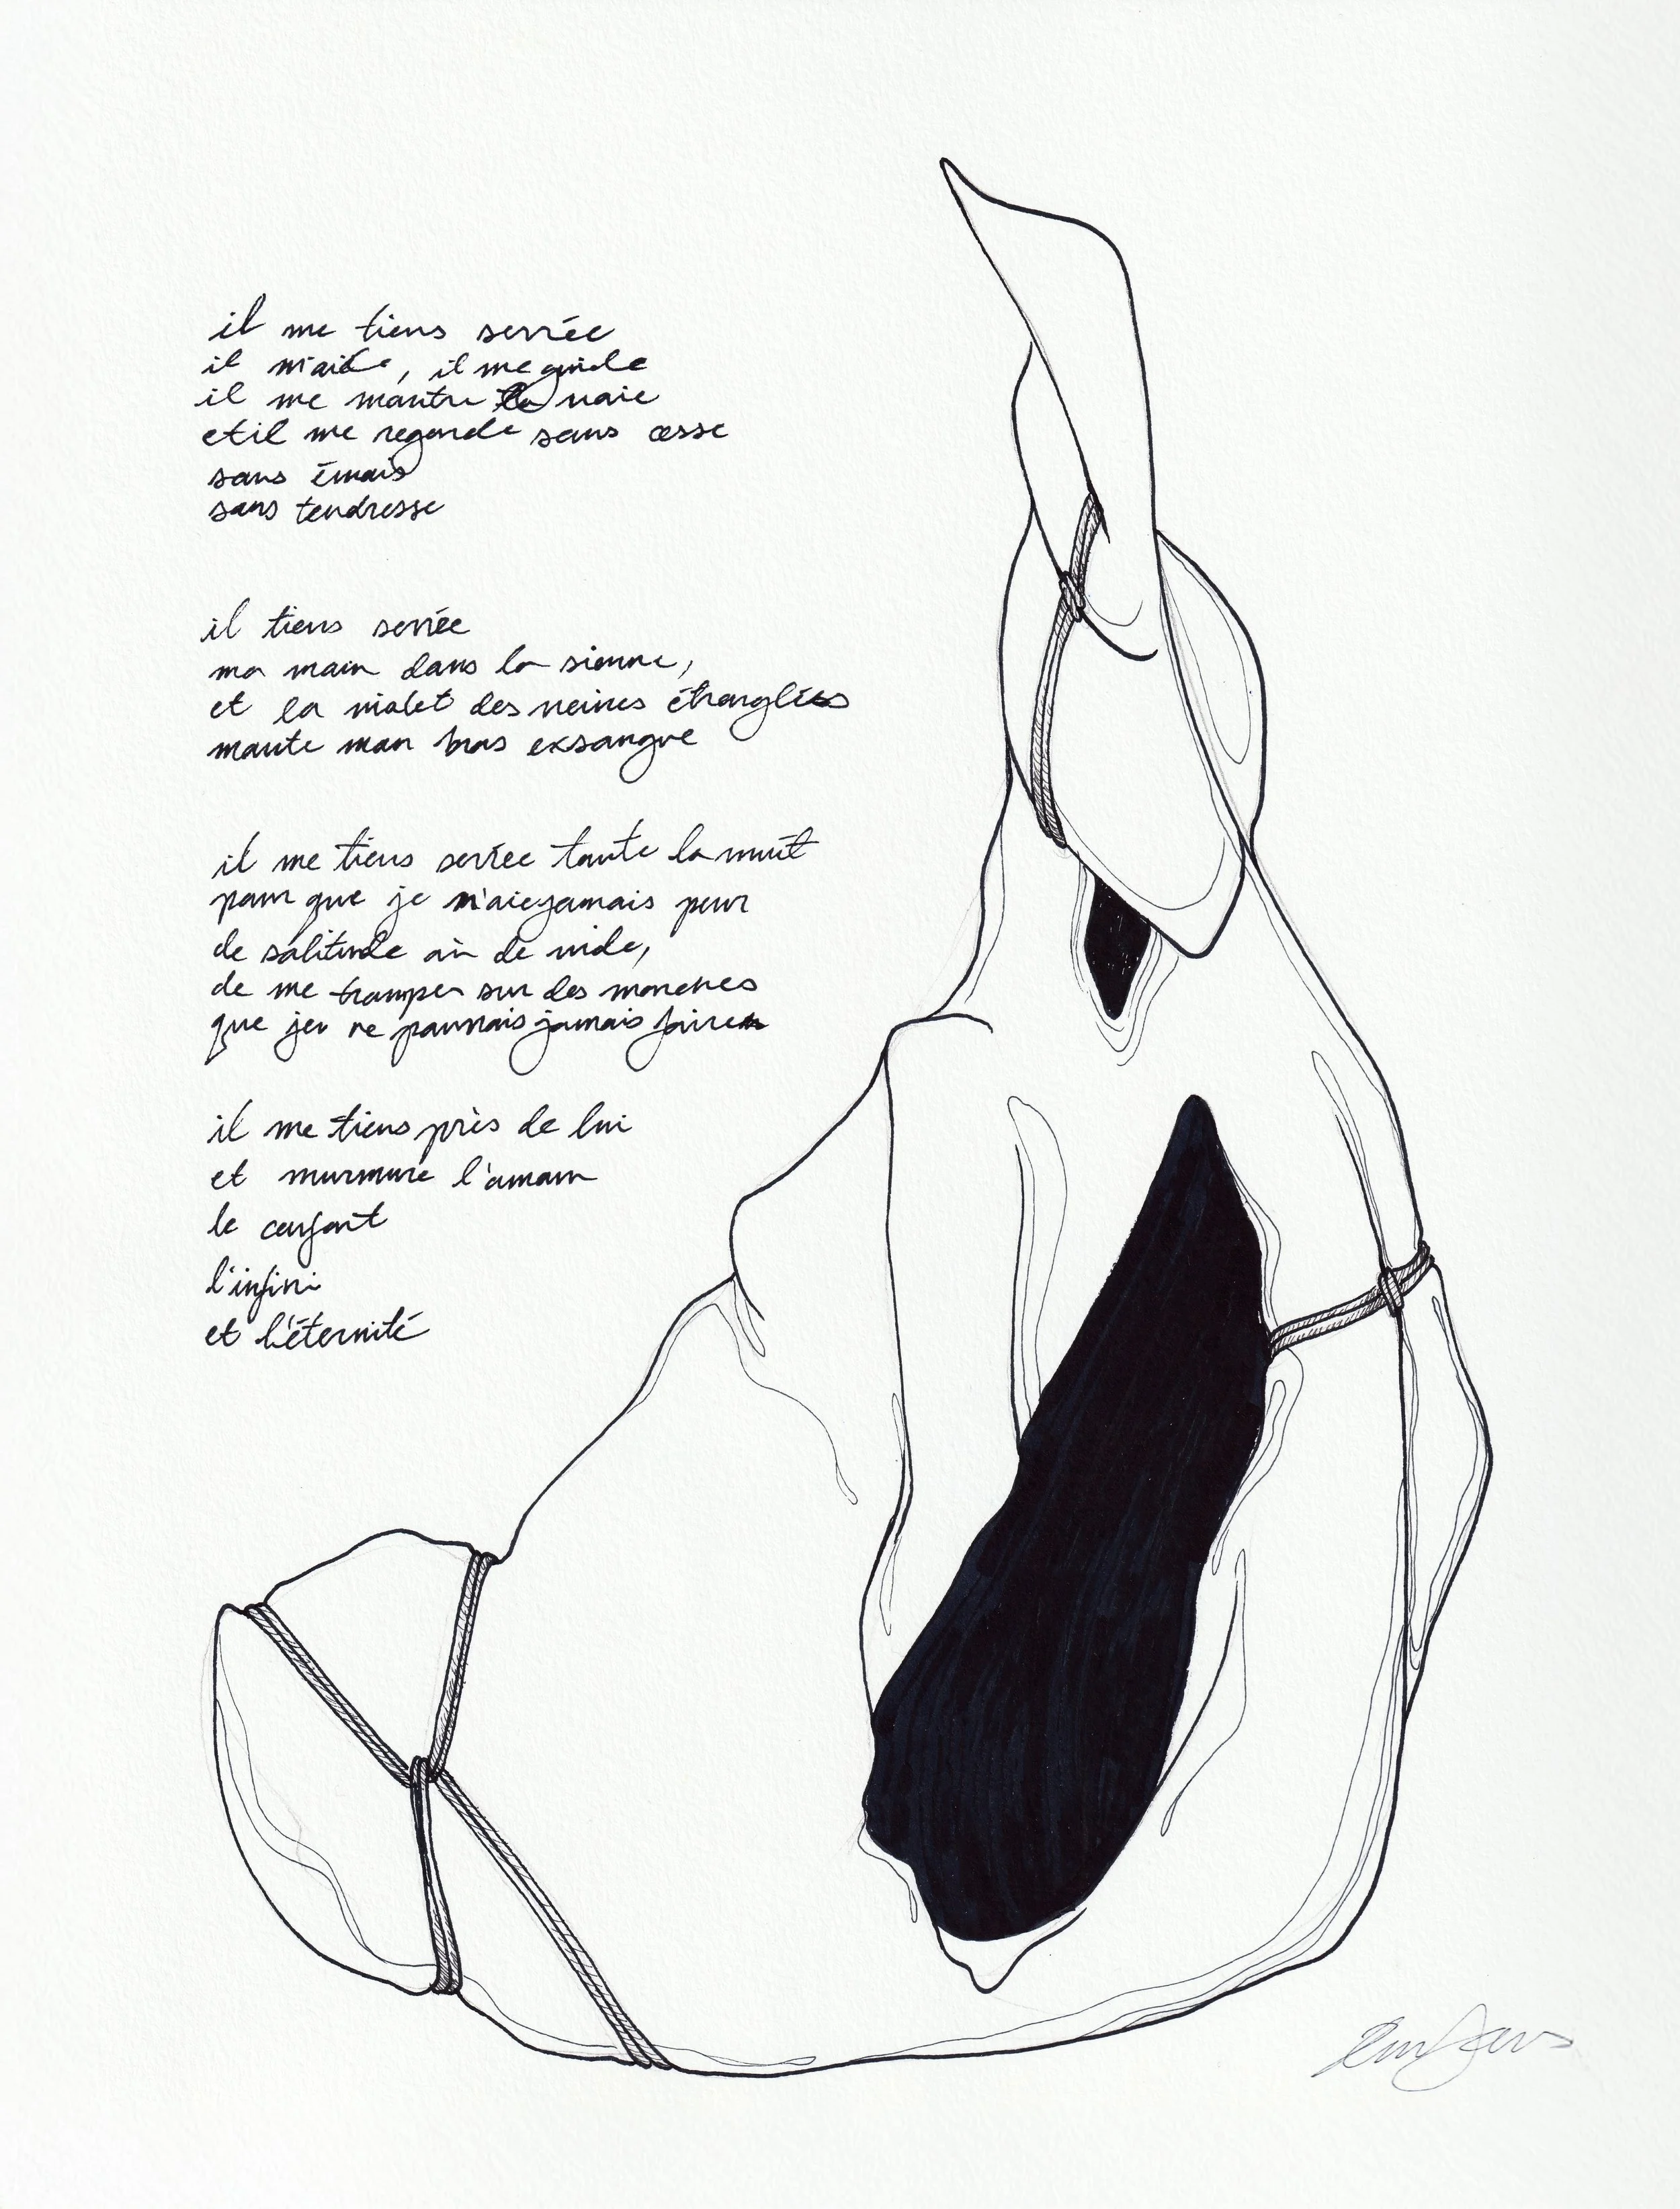 il me tiens serrée
il m'aide, il me guide
il me montre la voie
et il me regarde sans cesse
sans émois
sans tendresse
il tiens serrée
ma main dans la sienne,
et la violet des veines étranglées
monte mon bras exsangue
il me tiens serrée toute la nuit
pour que je n'aie jamais peur
de solitude où de vide,
de me tromper sur des marches
que je ne pourrais jamais faire
il me tiens près de lui
et murmure l'amour
le confort
l'infini
et l'éternité